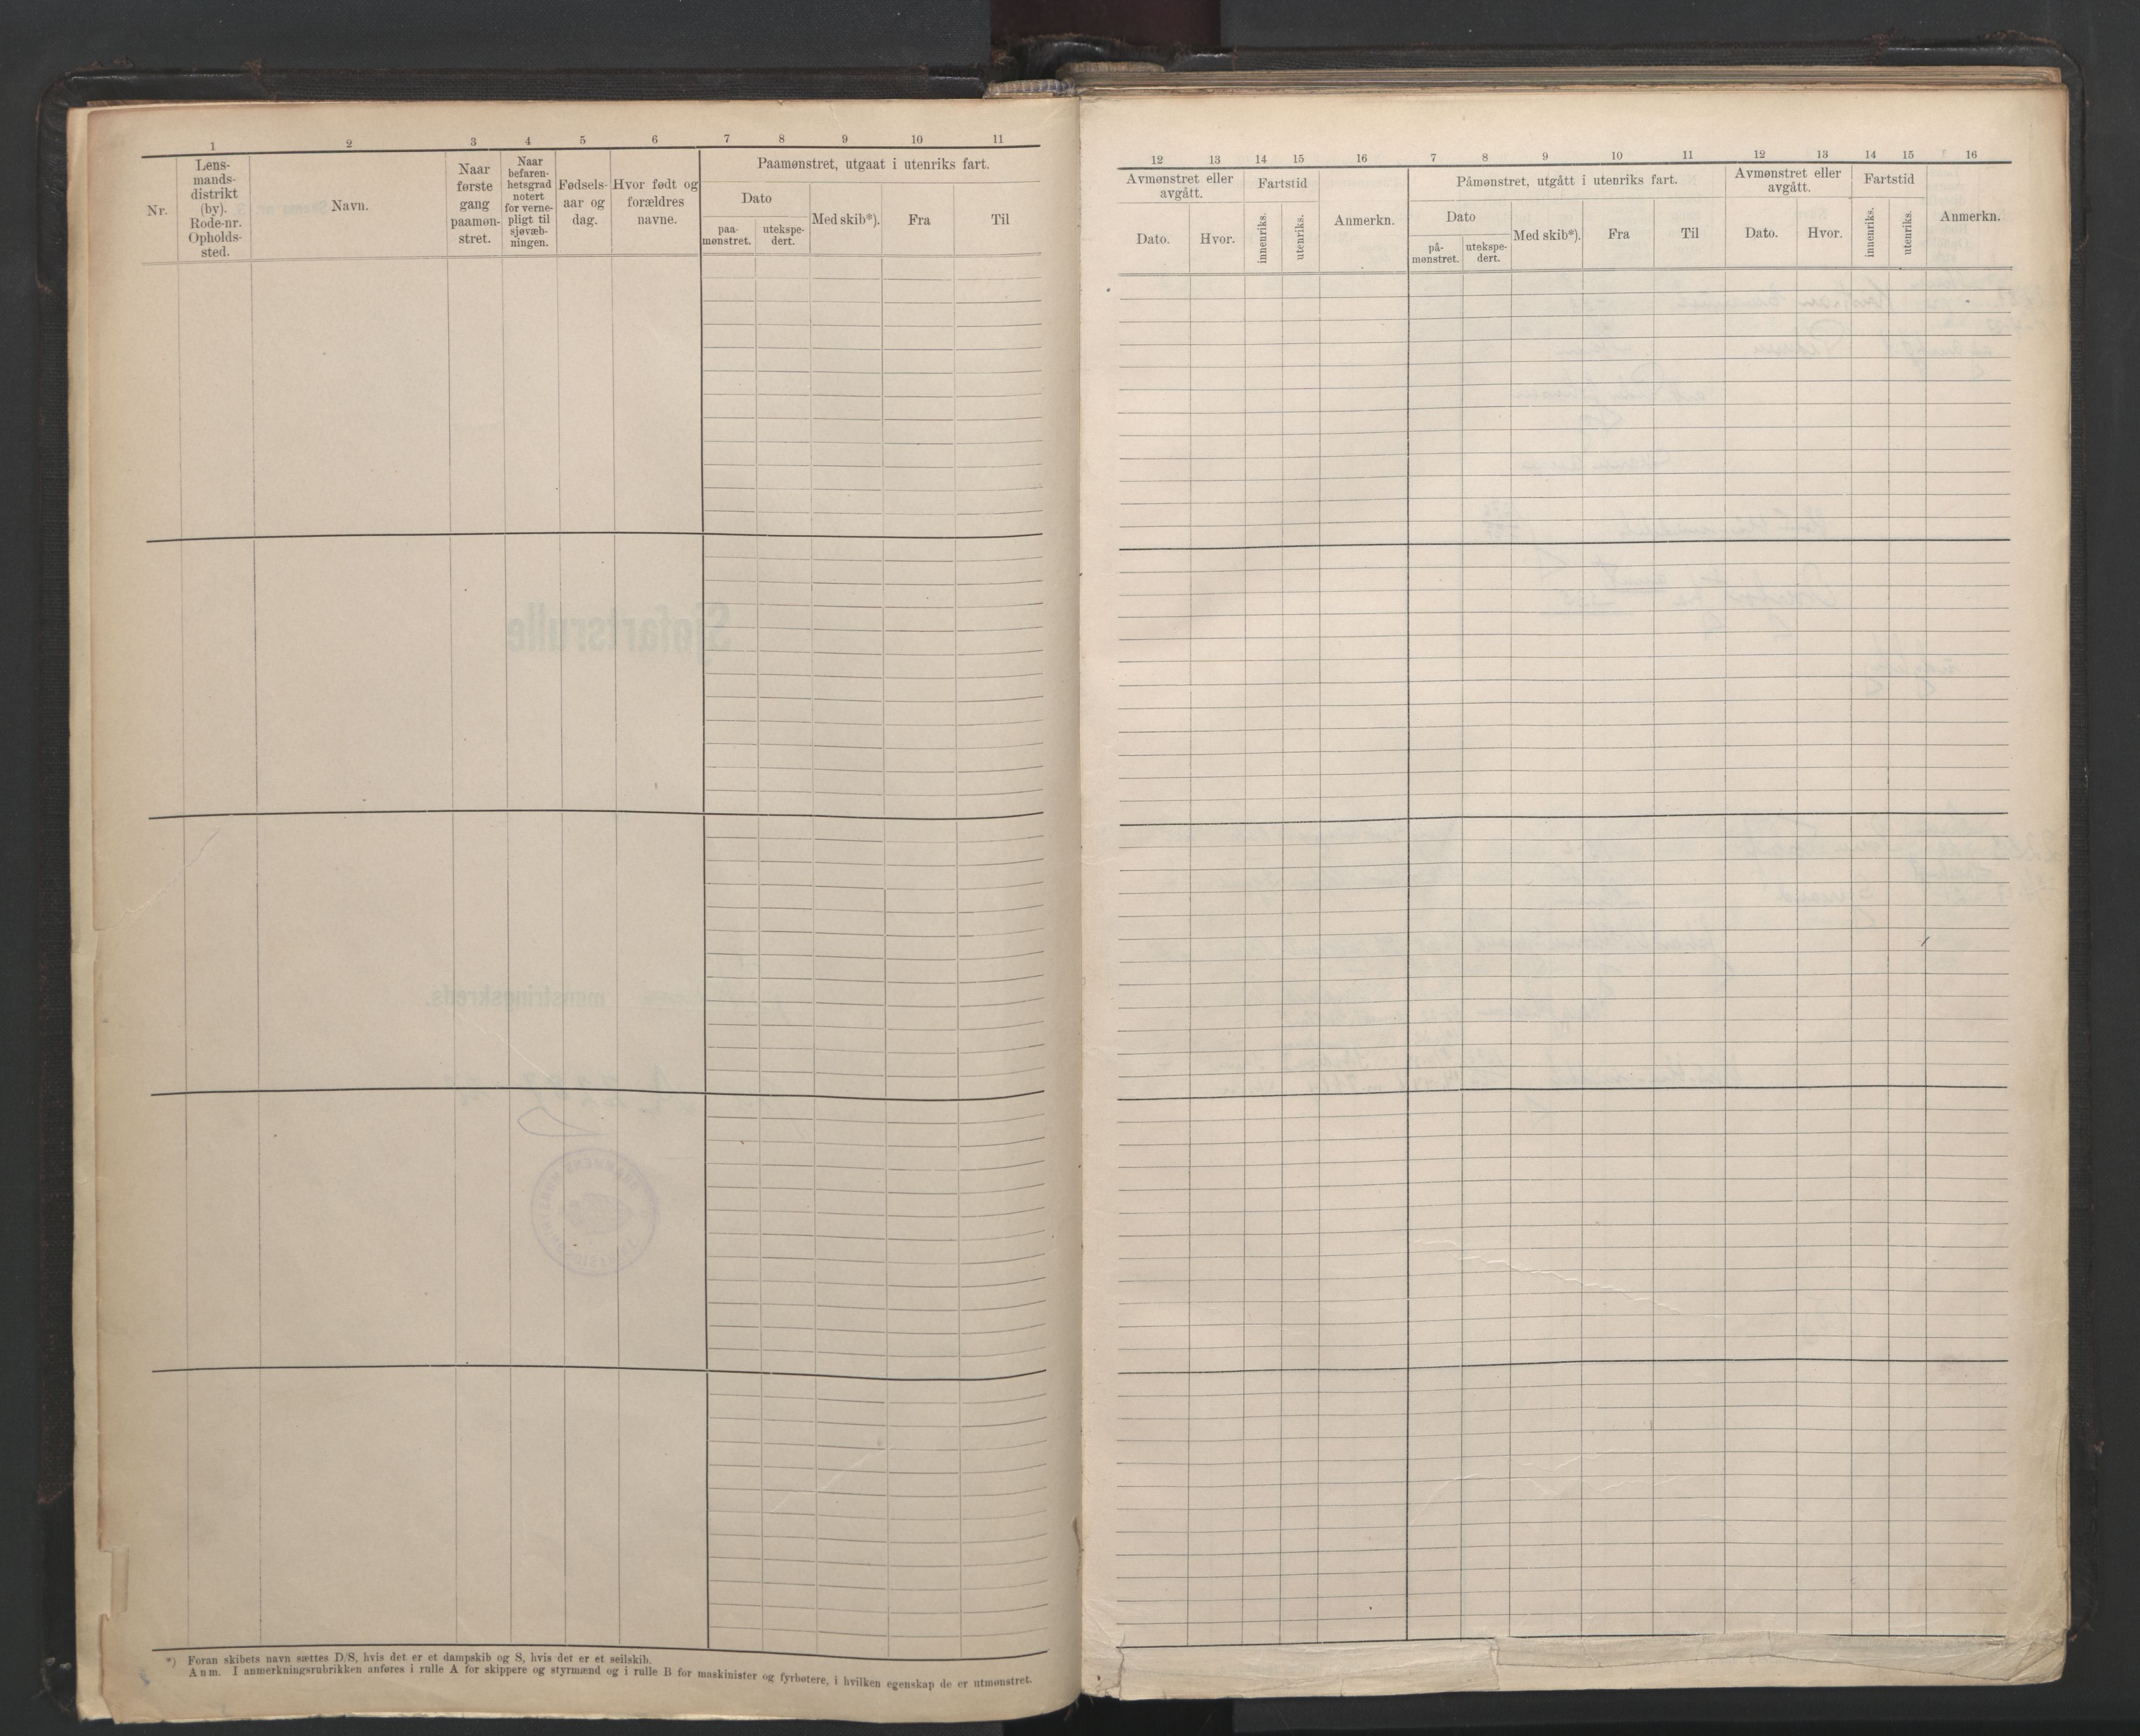 1 2 3 4 5 6 7 8 9 10 11
Nr.
Lens-
mands-
distrikt
(by).
Rode-nr.
Opholds-
sted.
Navn.
Naar
første
gang
paamøn-
stret.
Naar
befaren-
hetsgrad
notert
for verne-
pligt til
sjøvæb-
ningen.
Fødsels-
aar og
dag.
Hvor født og
forældres
navne.
Paamønstret, utgaat i utenriks fart.
Dato
paa-
mønstret.
utekspe-
dert.
Med skib*).
Fra
Til
Sjøfartsrulle
mønstringskreds.
*) Foran skibets navn sættes D/S, hvis det er et dampskib og S, hvis det er et seilskib.
Anm. I anmerkningsrubrikken anføres i rulle A for skippere og styrmænd og i rulle B for maskinister og fyrbøtere, i hvilken egenskap de er utmønstret.
12 13 14 15 16 7 8 9 10 11 12 13 14 15 16
Avmønstret eller
avgått.
Dato.
Hvor.
Fartstid
innenriks.
utenriks.
Anmerkn.
Påmønstret, utgått i utenriks fart.
Dato
på-
mønstret.
utekspe-
dert.
Med skib*).
Fra
Til
Avmønstret eller
avgått.
Dato.
Hvor.
Fartstid
innenriks.
utenriks.
Anmerkn.